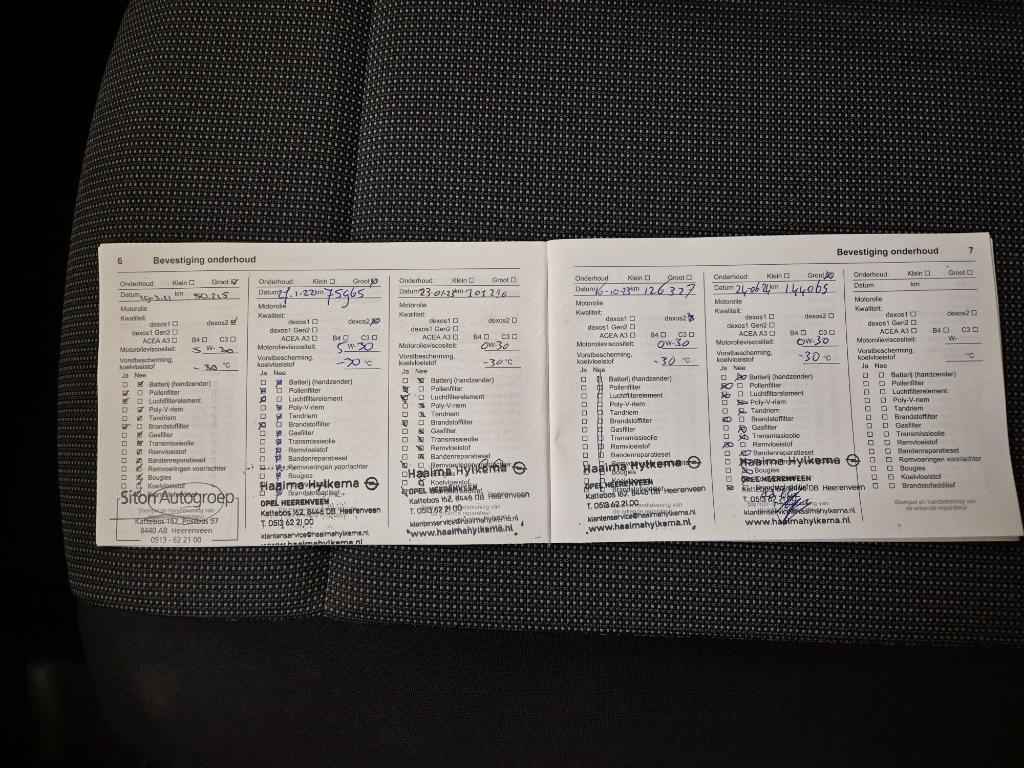 6 Bevestiging onderhoud
Onderhoud: Klein Groot
Datum km 50.215
Motorolie
Kwaliteit:
dexos1 dexos2
dexos1 Gen2
ACEA A3 B4 C3
Motorolieviscositeit: 5 W- 30
Vorstbescherming,
koelvloeistof - 30 °C
Ja Nee
Batterij (handzender)
Pollenfilter
Luchtfilterelement
Poly-V-riem
Tandriem
Brandstoffilter
Gasfilter
Transmissieolie
Remvloeistof
Bandenreparatieset
Remvoeringen voor/achter
Bougies
Koelvloeistof
Siton Autogroep
Kattebos 162, Postbus 57
8440 AB Heerenveen
0513 - 62 21 00
Onderhoud: Klein Groot
Datum km 75965
Motorolie
Kwaliteit:
dexos1 dexos2
dexos1 Gen2
ACEA A3 B4 C3
Motorolieviscositeit: 5 W-30
Vorstbescherming,
koelvloeistof °C
Ja Nee
Batterij (handzender)
Pollenfilter
Luchtfilterelement
Poly-V-riem
Tandriem
Brandstoffilter
Gasfilter
Transmissieolie
Remvloeistof
Bandenreparatieset
Remvoeringen voor/achter
Haaima Hylkema
OPEL HEERENVEEN
Kattebos 162, 8446 DB Heerenveen
T. 0513 62 21 00
klantenservice@haaimahylkema.nl
www.haaimahylkema.nl
Onderhoud: Klein Groot
Datum 23-01-23 km
Motorolie
Kwaliteit:
dexos1 dexos2
dexos1 Gen2
ACEA A3 B4 C3
Motorolieviscositeit: 0W-30
Vorstbescherming,
koelvloeistof -30 °C
Ja Nee
Batterij (handzender)
Pollenfilter
Luchtfilterelement
Poly-V-riem
Tandriem
Brandstoffilter
Gasfilter
Transmissieolie
Remvloeistof
Bandenreparatieset
Koelvloeistof
Haaima Hylkema
OPEL HEERENVEEN
Kattebos 162, 8446 DB Heerenveen
T. 0513 62 21 00
klantenservice@haaimahylkema.nl
www.haaimahylkema.nl
Bevestiging onderhoud 7
Onderhoud: Klein Groot
Datum 16-10-23 km 126327
Motorolie
Kwaliteit:
dexos1 dexos2
dexos1 Gen2
ACEA A3 B4 C3
Motorolieviscositeit: 0W-30
Vorstbescherming,
koelvloeistof -30 °C
Ja Nee
Batterij (handzender)
Pollenfilter
Luchtfilterelement
Poly-V-riem
Tandriem
Brandstoffilter
Gasfilter
Transmissieolie
Remvloeistof
Bandenreparatieset
Haaima Hylkema
OPEL HEERENVEEN
Kattebos 162, 8446 DB Heerenveen
T. 0513 62 21 00
klantenservice@haaimahylkema.nl
www.haaimahylkema.nl
Onderhoud: Klein Groot
Datum 24-06-24 km 144065
Motorolie
Kwaliteit:
dexos1 dexos2
dexos1 Gen2
ACEA A3 B4 C3
Motorolieviscositeit: 0W-30
Vorstbescherming,
koelvloeistof -30 °C
Ja Nee
Batterij (handzender)
Pollenfilter
Luchtfilterelement
Poly-V-riem
Tandriem
Brandstoffilter
Gasfilter
Transmissieolie
Remvloeistof
Bandenreparatieset
Haaima Hylkema
Bougies
OPEL HEERENVEEN
Kattebos 162, 8446 DB Heerenveen
klantenservice@haaimahylkema.nl
www.haaimahylkema.nl
Onderhoud: Klein Groot
Datum km
Motorolie
Kwaliteit:
dexos1 dexos2
dexos1 Gen2
ACEA A3 B4 C3
Motorolieviscositeit: W-
Vorstbescherming,
koelvloeistof °C
Ja Nee
Batterij (handzender)
Pollenfilter
Luchtfilterelement
Poly-V-riem
Tandriem
Brandstoffilter
Gasfilter
Transmissieolie
Remvloeistof
Bandenreparatieset
Remvoeringen voor/achter
Bougies
Koelvloeistof
Brandstofadditief
Stempel en handtekening van
de erkende reparateur